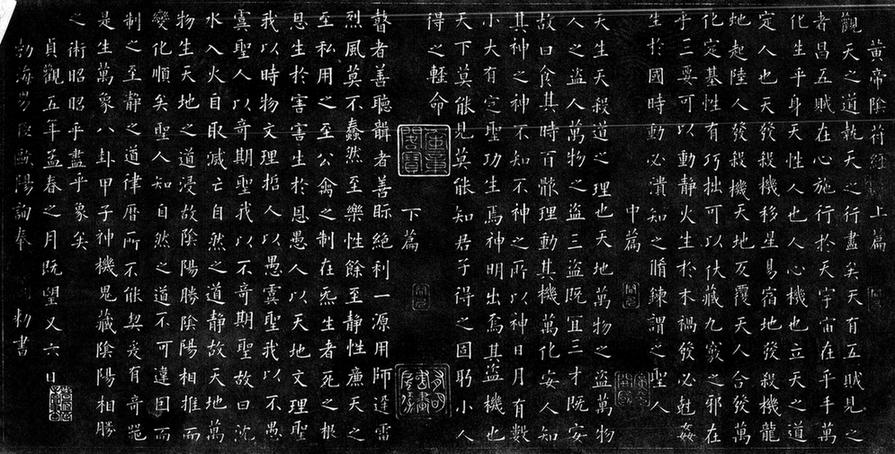 黄帝陰符經 上篇
觀天之道執天之行盡矣天有五賊見之
者昌五賊在心施行於天宇宙在乎手萬
化生乎身天性人也人心機也立天之道以
定人也天發殺機移星易宿地發殺機龍
地起陸人發殺機天地反覆天人合發萬
化定基性有巧拙可以伏藏九竅之邪在
乎三要可以動靜火生於木禍發必尅姦
生於國時動必潰知之脩鍊謂之聖人
中篇
天生天殺道之理也天地萬物之盜萬物
人之盜人萬物之盜三盜既宜三才既安
故曰食其時百骸理動其機萬化安人知
其神之神不知不神之所以神日月有數
小大有定聖功生焉神明出焉其盜機也
天下莫能見莫能知君子得之固躬小人
得之輕命
下篇
瞽者善聽聾者善眎絕利一源用師
至樂性餘至靜性廉天之
至私用之至公禽之制在炁生者死之根
恩生於害害生於恩愚人以天地文理聖
我以時物文理哲人以愚虞聖我以不愚
虞聖人以奇期聖我以不奇期聖故曰沈
水入火自取滅亡自然之道靜故天地萬
物生天地之道浸故陰陽勝陰陽相推而
變化順矣聖人知自然之道不可違因而
制之至靜之道律曆所不能契爰有奇器
是生萬象八卦甲子神機鬼藏陰陽相勝
之術昭昭乎盡乎象矣
貞觀五年孟春之月既望又六日
勃海男臣歐陽詢奉 勅書